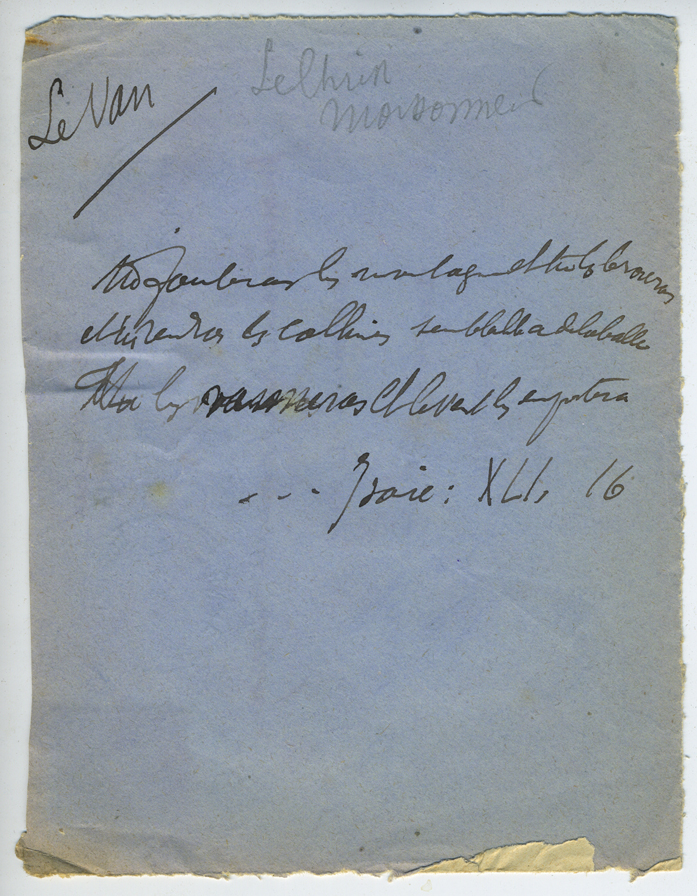 Le Van
Le Chien
moissonneur
tu fouleras les montagnes et tu les broieras
et tu rendras les collines semblables à de la balle
Tu les vanneras et le vent les emportera
--- Isaïe: XLI, 16